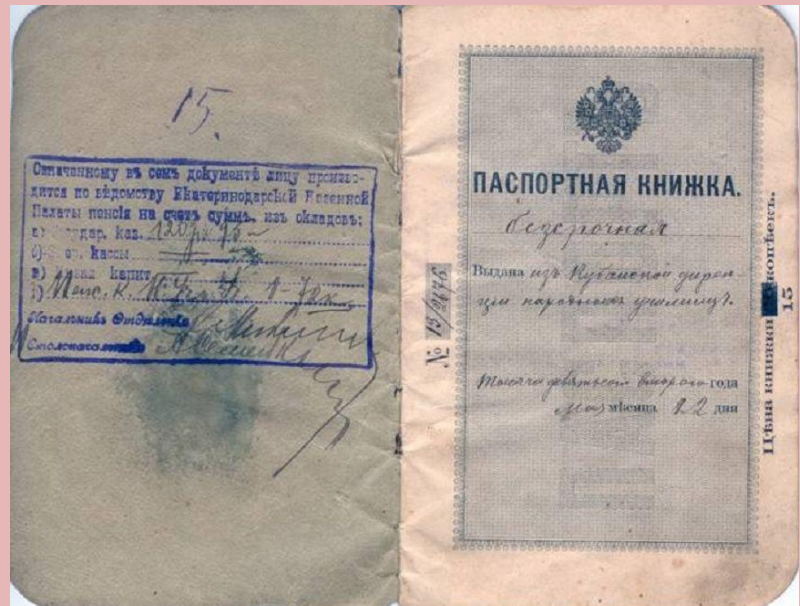 15.
Означенному въ семъ документѣ лицу произво-
дится по вѣдомству Екатеринодарской Казенной
Палаты пенсія на счетъ суммъ, изъ окладовъ:
а) кав. 120 р.
б) кассы
в) капит.
г)
Начальникъ Отдѣленія
Столоначальникъ
ПАСПОРТНАЯ КНИЖКА.
безсрочная
Выдана изъ Кубанской дирек-
ціи народныхъ училищъ.
Тысяча девятьсотъ второго года
мая мѣсяца 22 дня
№ 15/2676
Цѣна книжки копѣекъ.
15